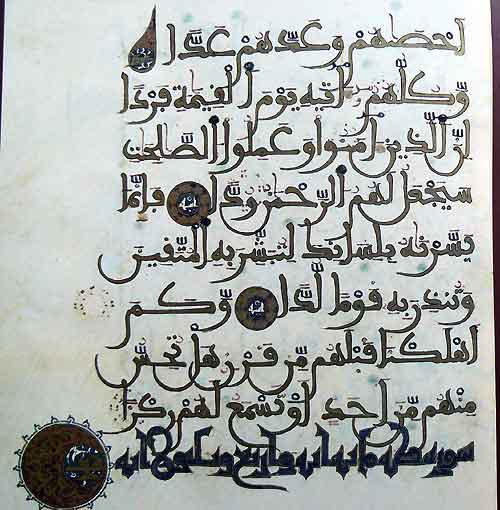 احصهم وعدّهم عدّا
وكلّهم اتيه يوم القيمة فردا
انّ الّذين امنوا وعملوا الصّلحت
سيجعل لهم الرّحمن ودّا فانّما
يسّرنه بلسانك لتبشّر به المتّقين
وتنذر به قوما لّدّا وكم
اهلكنا قبلهم مّن قرن هل تحسّ
منهم مّن احد او تسمع لهم ركزا
سورة طه ماية اية واربع وثلثون اية